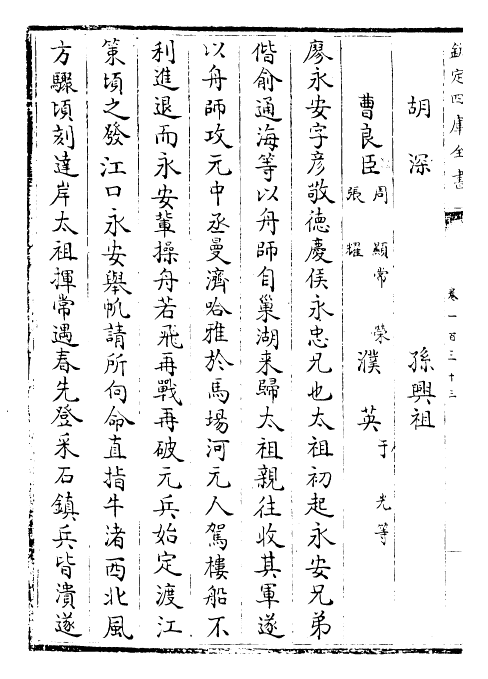 欽定四庫全書
卷一百三十三
胡深　孫興祖
曹良臣　周顯　常榮　張耀　濮英　于光等
廖永安字彦敬德慶侯永忠兄也太祖初起永安兄弟
偕俞通海等以舟師自巢湖来歸太祖親往收其軍遂
以舟師攻元中丞曼濟哈雅於馬場河元人駕樓船不
利進退而永安輩操舟若飛再戰再破元兵始定渡江
策頃之發江口永安舉帆請所向命直指牛渚西北風
方驟頃刻達岸太祖揮常遇春先登采石鎮兵皆潰遂